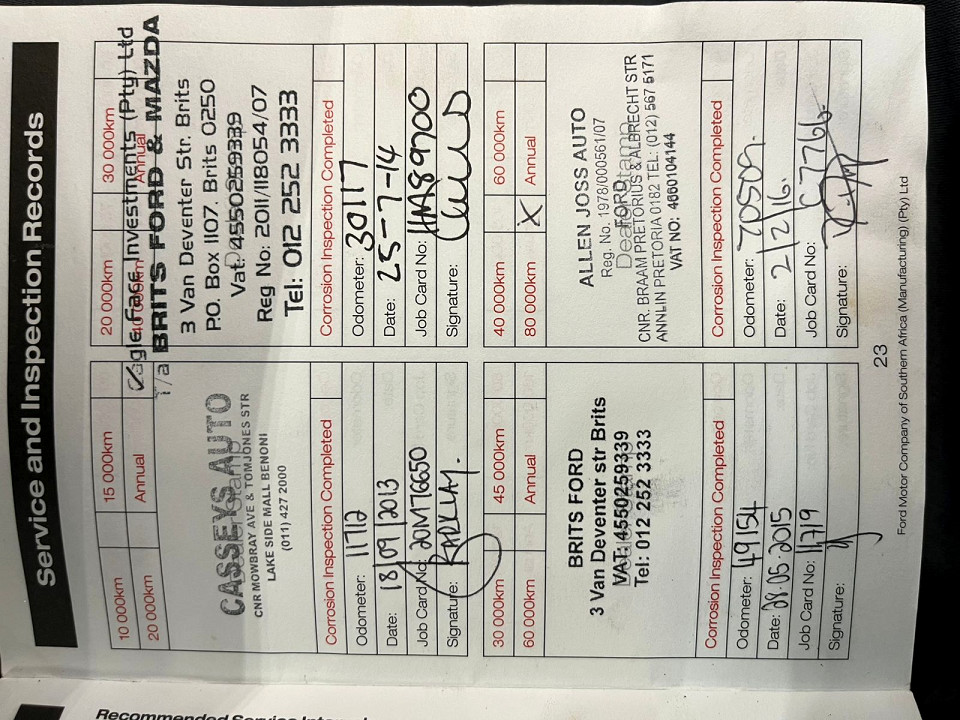 Service and Inspection Records
10 000km 15 000km
20 000km Annual
CASSEYS AUTO
CNR MOWBRAY AVE & TOMJONES STR
LAKE SIDE MALL BENONI
(011) 427 2000
Corrosion Inspection Completed
Odometer: 11712
Date: 18/09/2013
Job Card No: 20M76650
Signature:
20 000km 30 000km
40 000km Annual
Eagle Face Investments (Pty) Ltd
T/a BRITS FORD & MAZDA
3 Van Deventer Str. Brits
P.O. Box 1107. Brits 0250
Vat: 4550259339
Reg No: 2011/118054/07
Tel: 012 252 3333
Corrosion Inspection Completed
Odometer: 30117
Date: 25-7-14
Job Card No:
Signature:
30 000km 45 000km
60 000km Annual
BRITS FORD
3 Van Deventer str Brits
VAT: 4550259339
Tel: 012 252 3333
Corrosion Inspection Completed
Odometer: 49154
Date: 28.05.2015
Job Card No: 11719
Signature:
40 000km 60 000km
80 000km X Annual
ALLEN JOSS AUTO
Reg. No. 1978/000561/07
FORD
Dealer Stamp
CNR. BRAAM PRETORIUS & ALBRECHT STR
ANNLIN PRETORIA 0182 TEL: (012) 567 5171
VAT NO: 4660104144
Corrosion Inspection Completed
Odometer: 70509.
Date: 2/2/16.
Job Card No: C7766.
Signature:
23
Ford Motor Company of Southern Africa (Manufacturing) (Pty) Ltd